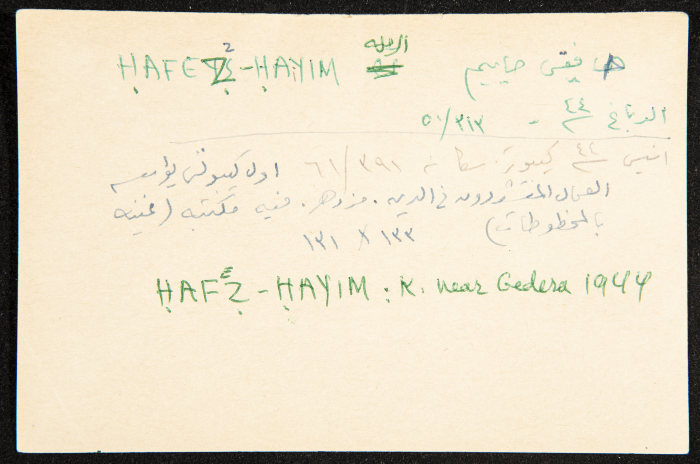 ḤAFEẒ-ḤAYIM الرملة هافيتس حاييم
الدباغ ٤٤ - ٥١/٣١٣
انيس ٤٤ كيبوتز. سكانه ٦١/٣٩١ اول كيبوتس يؤسسه
العمال المتشددون في الدين. مزدهر. فيه مكتبة (غنية
بالمخطوطات) ١٣٣ X ١٣١
ḤAFEẒ-ḤAYIM: K. near Gedera 1944